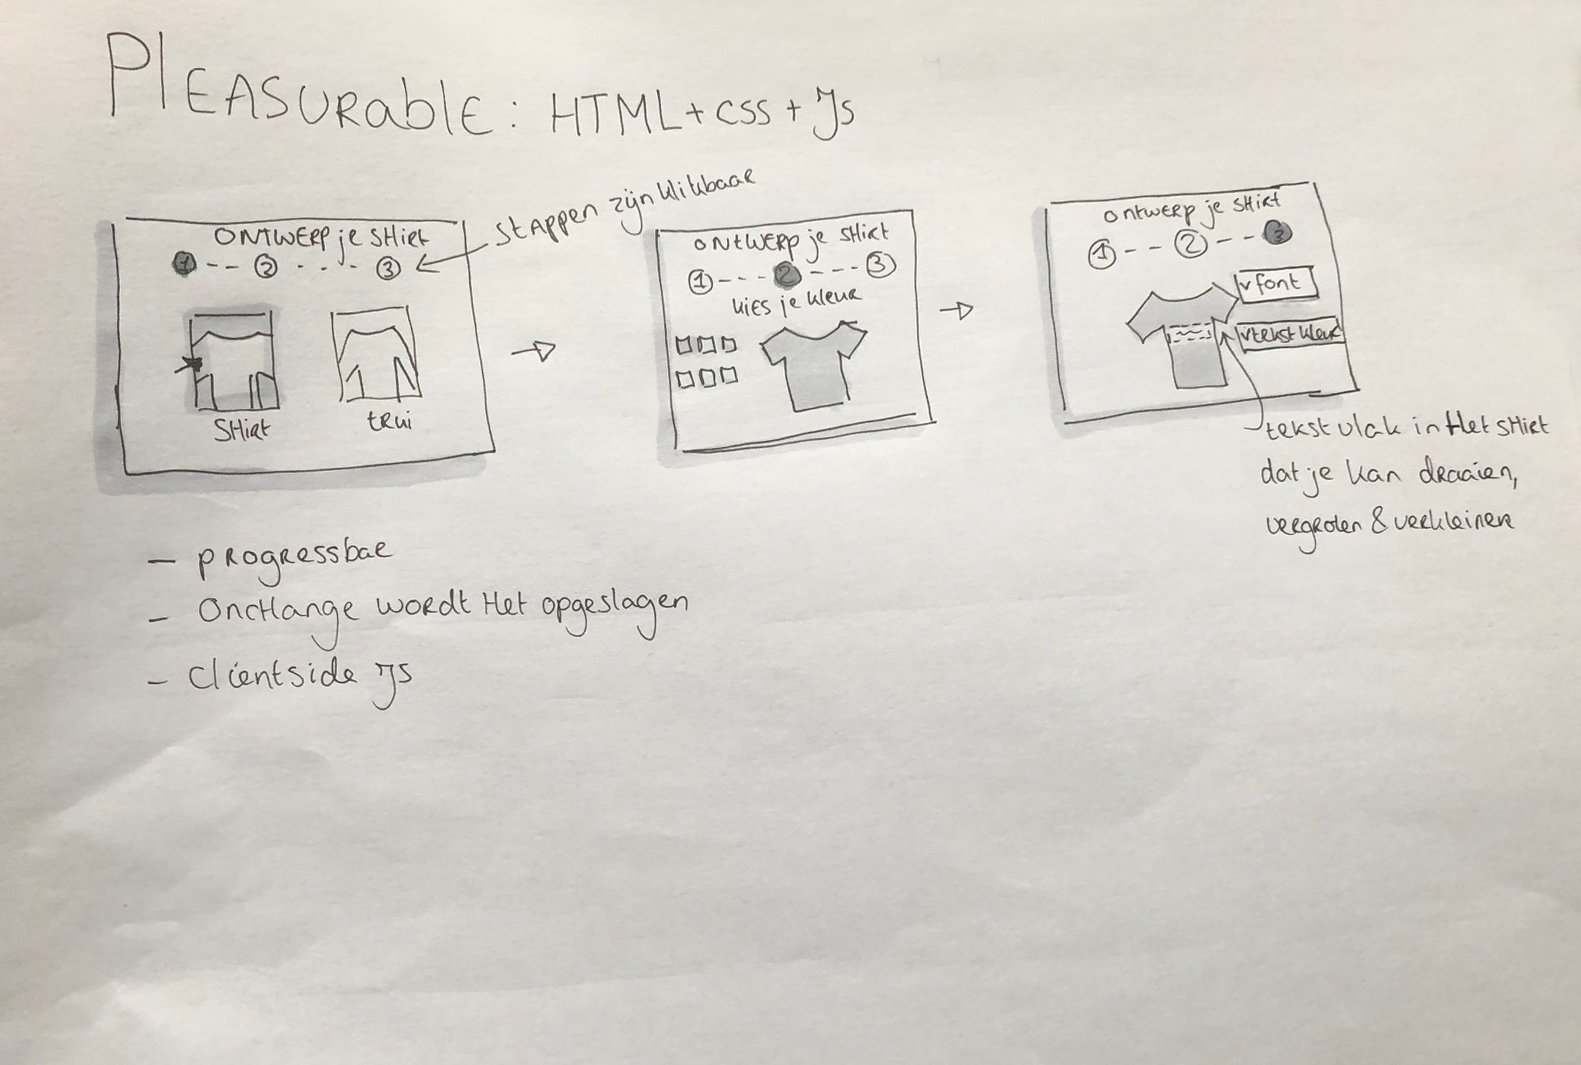 PLEASURable: HTML + CSS + JS
stappen zijn klikbaar
ONTWERP je SHIRT
1 -- 2 .... 3
SHIRT
tRui
ONtWERP je SHIRt
1 --- 2 --- 3
kiES je kleur
ontwerp je SHIRt
1 -- 2 -- 3
v font
v tekst kleur
tekst vlak in Het SHIRt
dat je kan draaien,
vergroten & verkleinen
- progressbar
- OncHange wordt Het opgeslagen
- Clientside JS